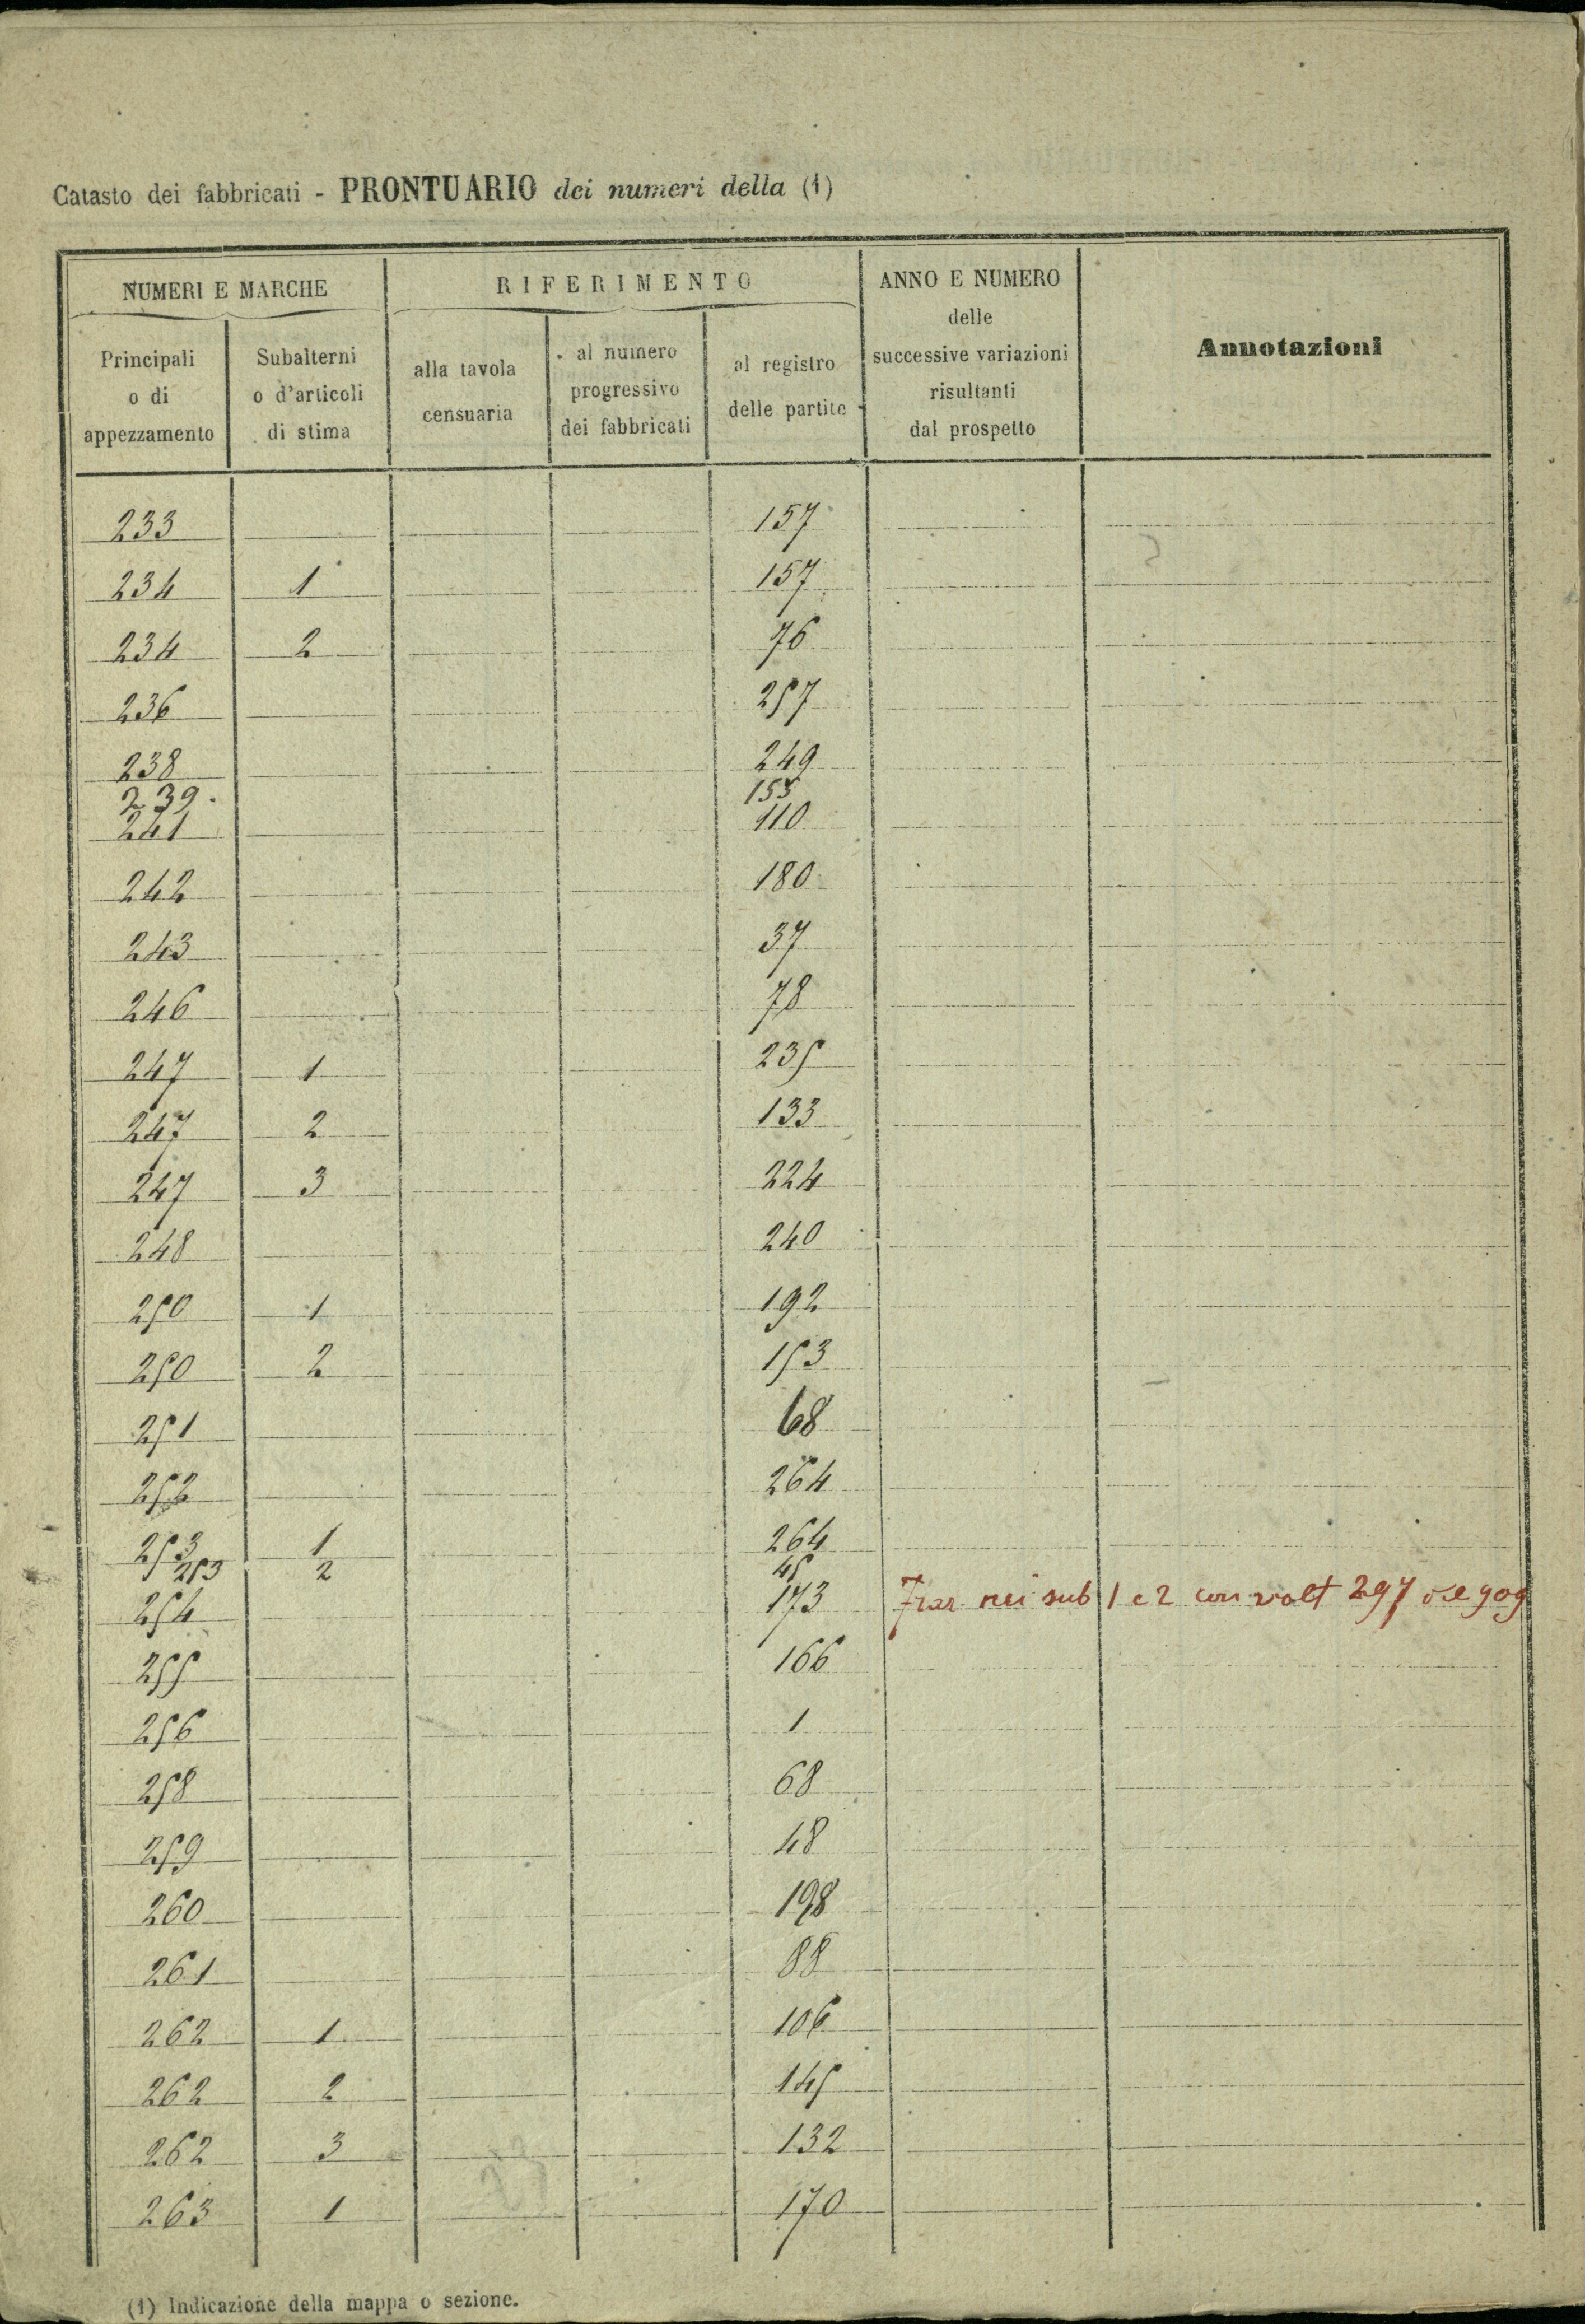 Catasto dei fabbricati - PRONTUARIO dei numeri della (1)
NUMERI E MARCHE
RIFERIMENTO
ANNO E NUMERO
delle
successive variazioni
risultanti
dal prospetto
Annotazioni
Principali
o di
appezzamento
Subalterni
o d'articoli
di stima
alla tavola
censuaria
al numero
progressivo
dei fabbricati
al registro
delle partite
233 157
234 1 157
234 2 76
236 257
238 249
239. 155
241 110
242 180
243 37
246 78
247 1 235
247 2 133
247 3 224
248 240
250 1 192
250 2 153
251 68
252 264
253 1 264
253 2 45
254 173 nei sub 1 e 2 con volt 297
255 166
256 1
258 68
259 48
260 198
261 88
262 1 106
262 2 145
262 3 132
263 1 170
(1) Indicazione della mappa o sezione.